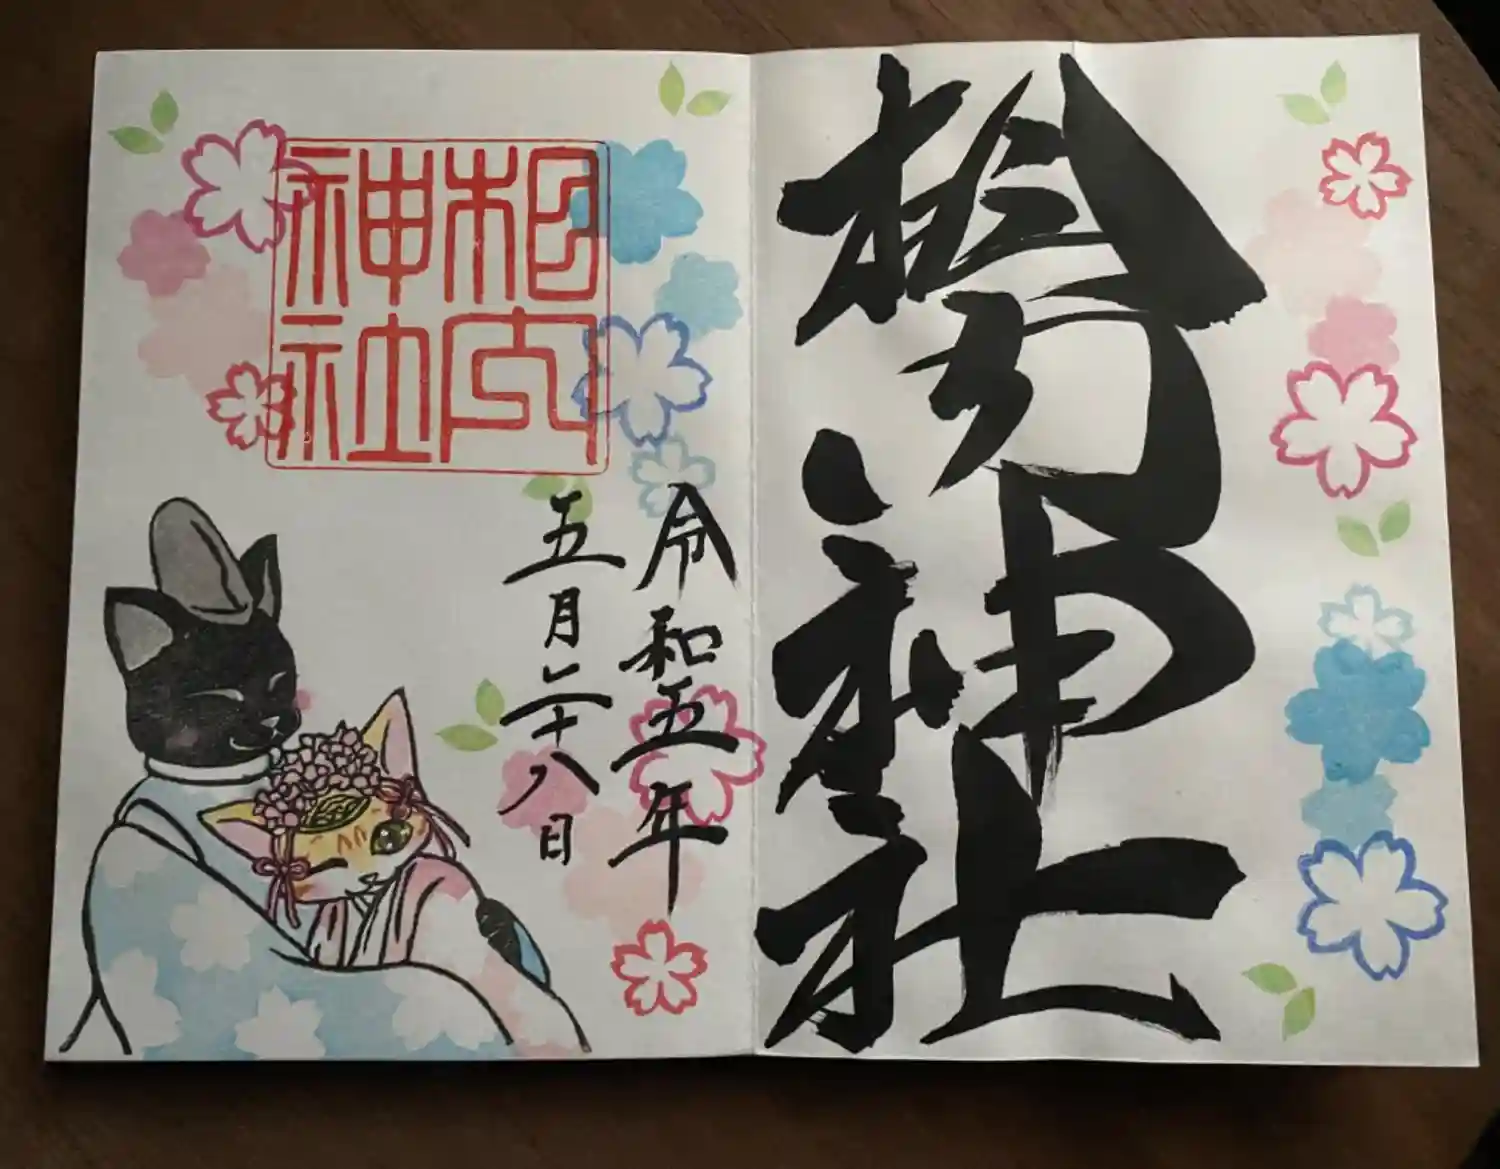 神社
令和五年
五月二十八日
内
神社